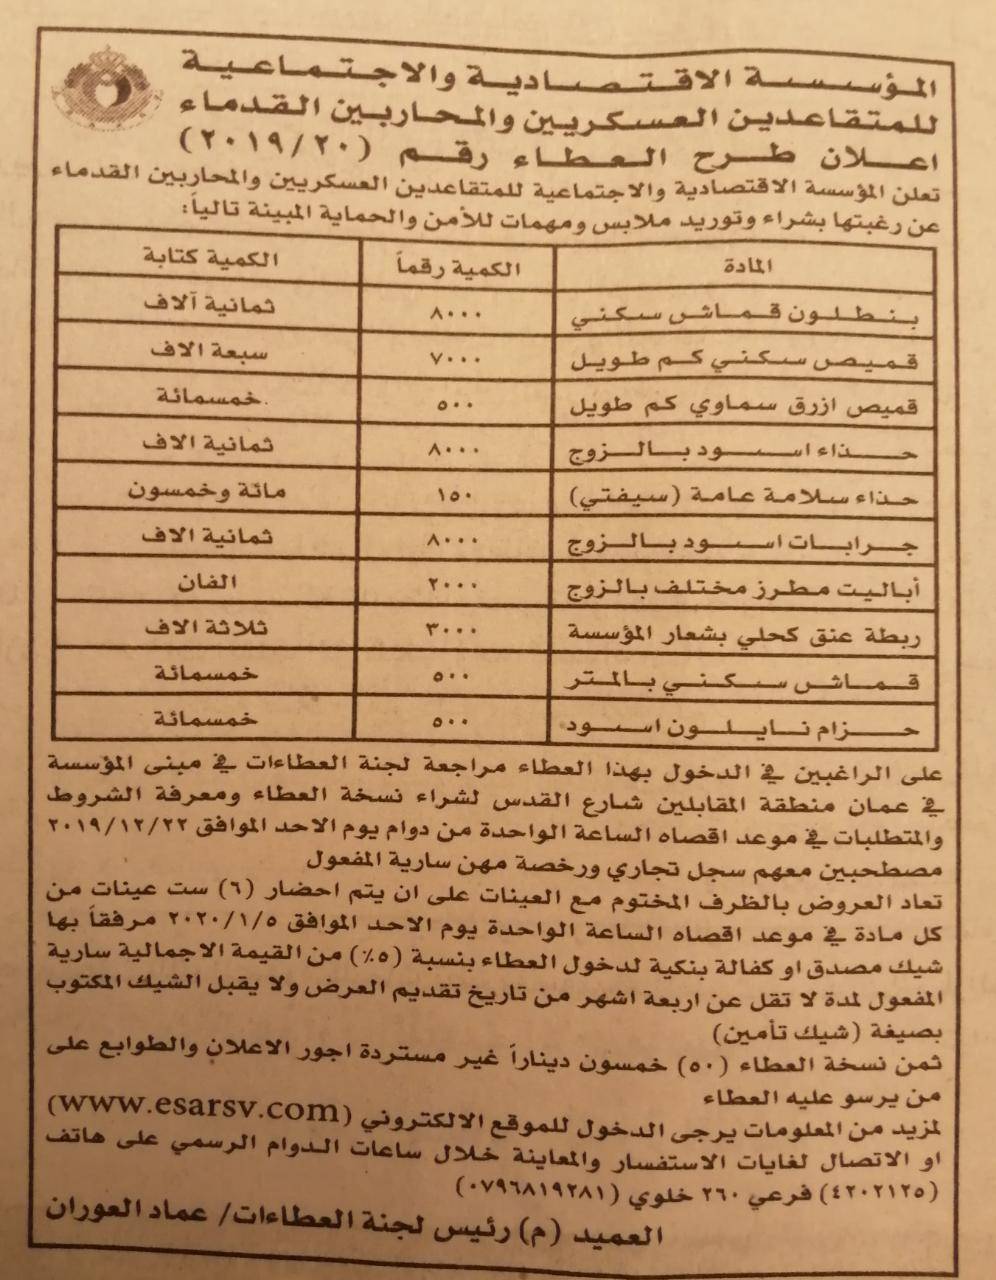 المؤسسة الاقتصادية والاجتماعية
للمتقاعدين العسكريين والمحاربين القدماء
اعلان طرح العطاء رقم (٢٠١٩/٢٠)
تعلن المؤسسة الاقتصادية والاجتماعية للمتقاعدين العسكريين والمحاربين القدماء
عن رغبتها بشراء وتوريد ملابس ومهمات للأمن والحماية المبينة تالياً:
المادة الكمية رقماً الكمية كتابة
بنطلون قماش سكني ٨٠٠٠ ثمانية آلاف
قميص سكني كم طويل ٧٠٠٠ سبعة الاف
قميص ازرق سماوي كم طويل ٥٠٠ خمسمائة
حذاء اسود بالزوج ٨٠٠٠ ثمانية الاف
حذاء سلامة عامة (سيفتي) ١٥٠ مائة وخمسون
جرابات اسود بالزوج ٨٠٠٠ ثمانية الاف
أباليت مطرز مختلف بالزوج ٢٠٠٠ الفان
ربطة عنق كحلي بشعار المؤسسة ٣٠٠٠ ثلاثة الاف
قماش سكني بالمتر ٥٠٠ خمسمائة
حزام نايلون اسود ٥٠٠ خمسمائة
على الراغبين في الدخول بهذا العطاء مراجعة لجنة العطاءات في مبنى المؤسسة
في عمان منطقة المقابلين شارع القدس لشراء نسخة العطاء ومعرفة الشروط
والمتطلبات في موعد اقصاه الساعة الواحدة من دوام يوم الاحد الموافق ٢٠١٩/١٢/٢٢
مصطحبين معهم سجل تجاري ورخصة مهن سارية المفعول
تعاد العروض بالظرف المختوم مع العينات على ان يتم احضار (٦) ست عينات من
كل مادة في موعد اقصاه الساعة الواحدة يوم الاحد الموافق ٢٠٢٠/١/٥ مرفقاً بها
شيك مصدق او كفالة بنكية لدخول العطاء بنسبة (٥٪) من القيمة الاجمالية سارية
المفعول لمدة لا تقل عن اربعة اشهر من تاريخ تقديم العرض ولا يقبل الشيك المكتوب
بصيغة (شيك تأمين)
ثمن نسخة العطاء (٥٠) خمسون ديناراً غير مستردة اجور الاعلان والطوابع على
من يرسو عليه العطاء
لمزيد من المعلومات يرجى الدخول للموقع الالكتروني (www.esarsv.com)
او الاتصال لغايات الاستفسار والمعاينة خلال ساعات الدوام الرسمي على هاتف
(٤٢٠٢١٢٥) فرعي ٢٦٠ خلوي (٠٧٩٦٨١٩٢٨١)
العميد (م) رئيس لجنة العطاءات/ عماد العوران